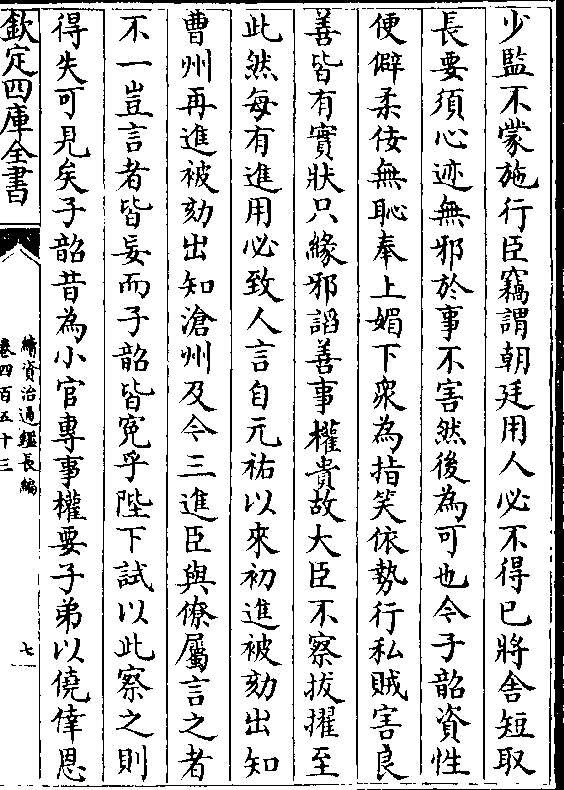 少監不蒙施行臣竊謂朝廷用人必不得已將舍短取
長要須心迹無邪於事不害然後為可也今子韶資性
便僻柔佞無恥奉上媚下衆為指笑依勢行私賊害良
善皆有實狀只緣邪謟善事權貴故大臣不察拔擢至
此然每有進用必致人言自元祐以來初進被劾出知
曹州再進被劾出知滄州及今三進臣與僚屬言之者
不一豈言者皆妄而子韶皆寃乎陛下試以此察之則
得失可見矣子韶昔為小官專事權要子弟以僥倖恩
欽定四庫全書
續資治通鑑長編
卷四百五十三
七